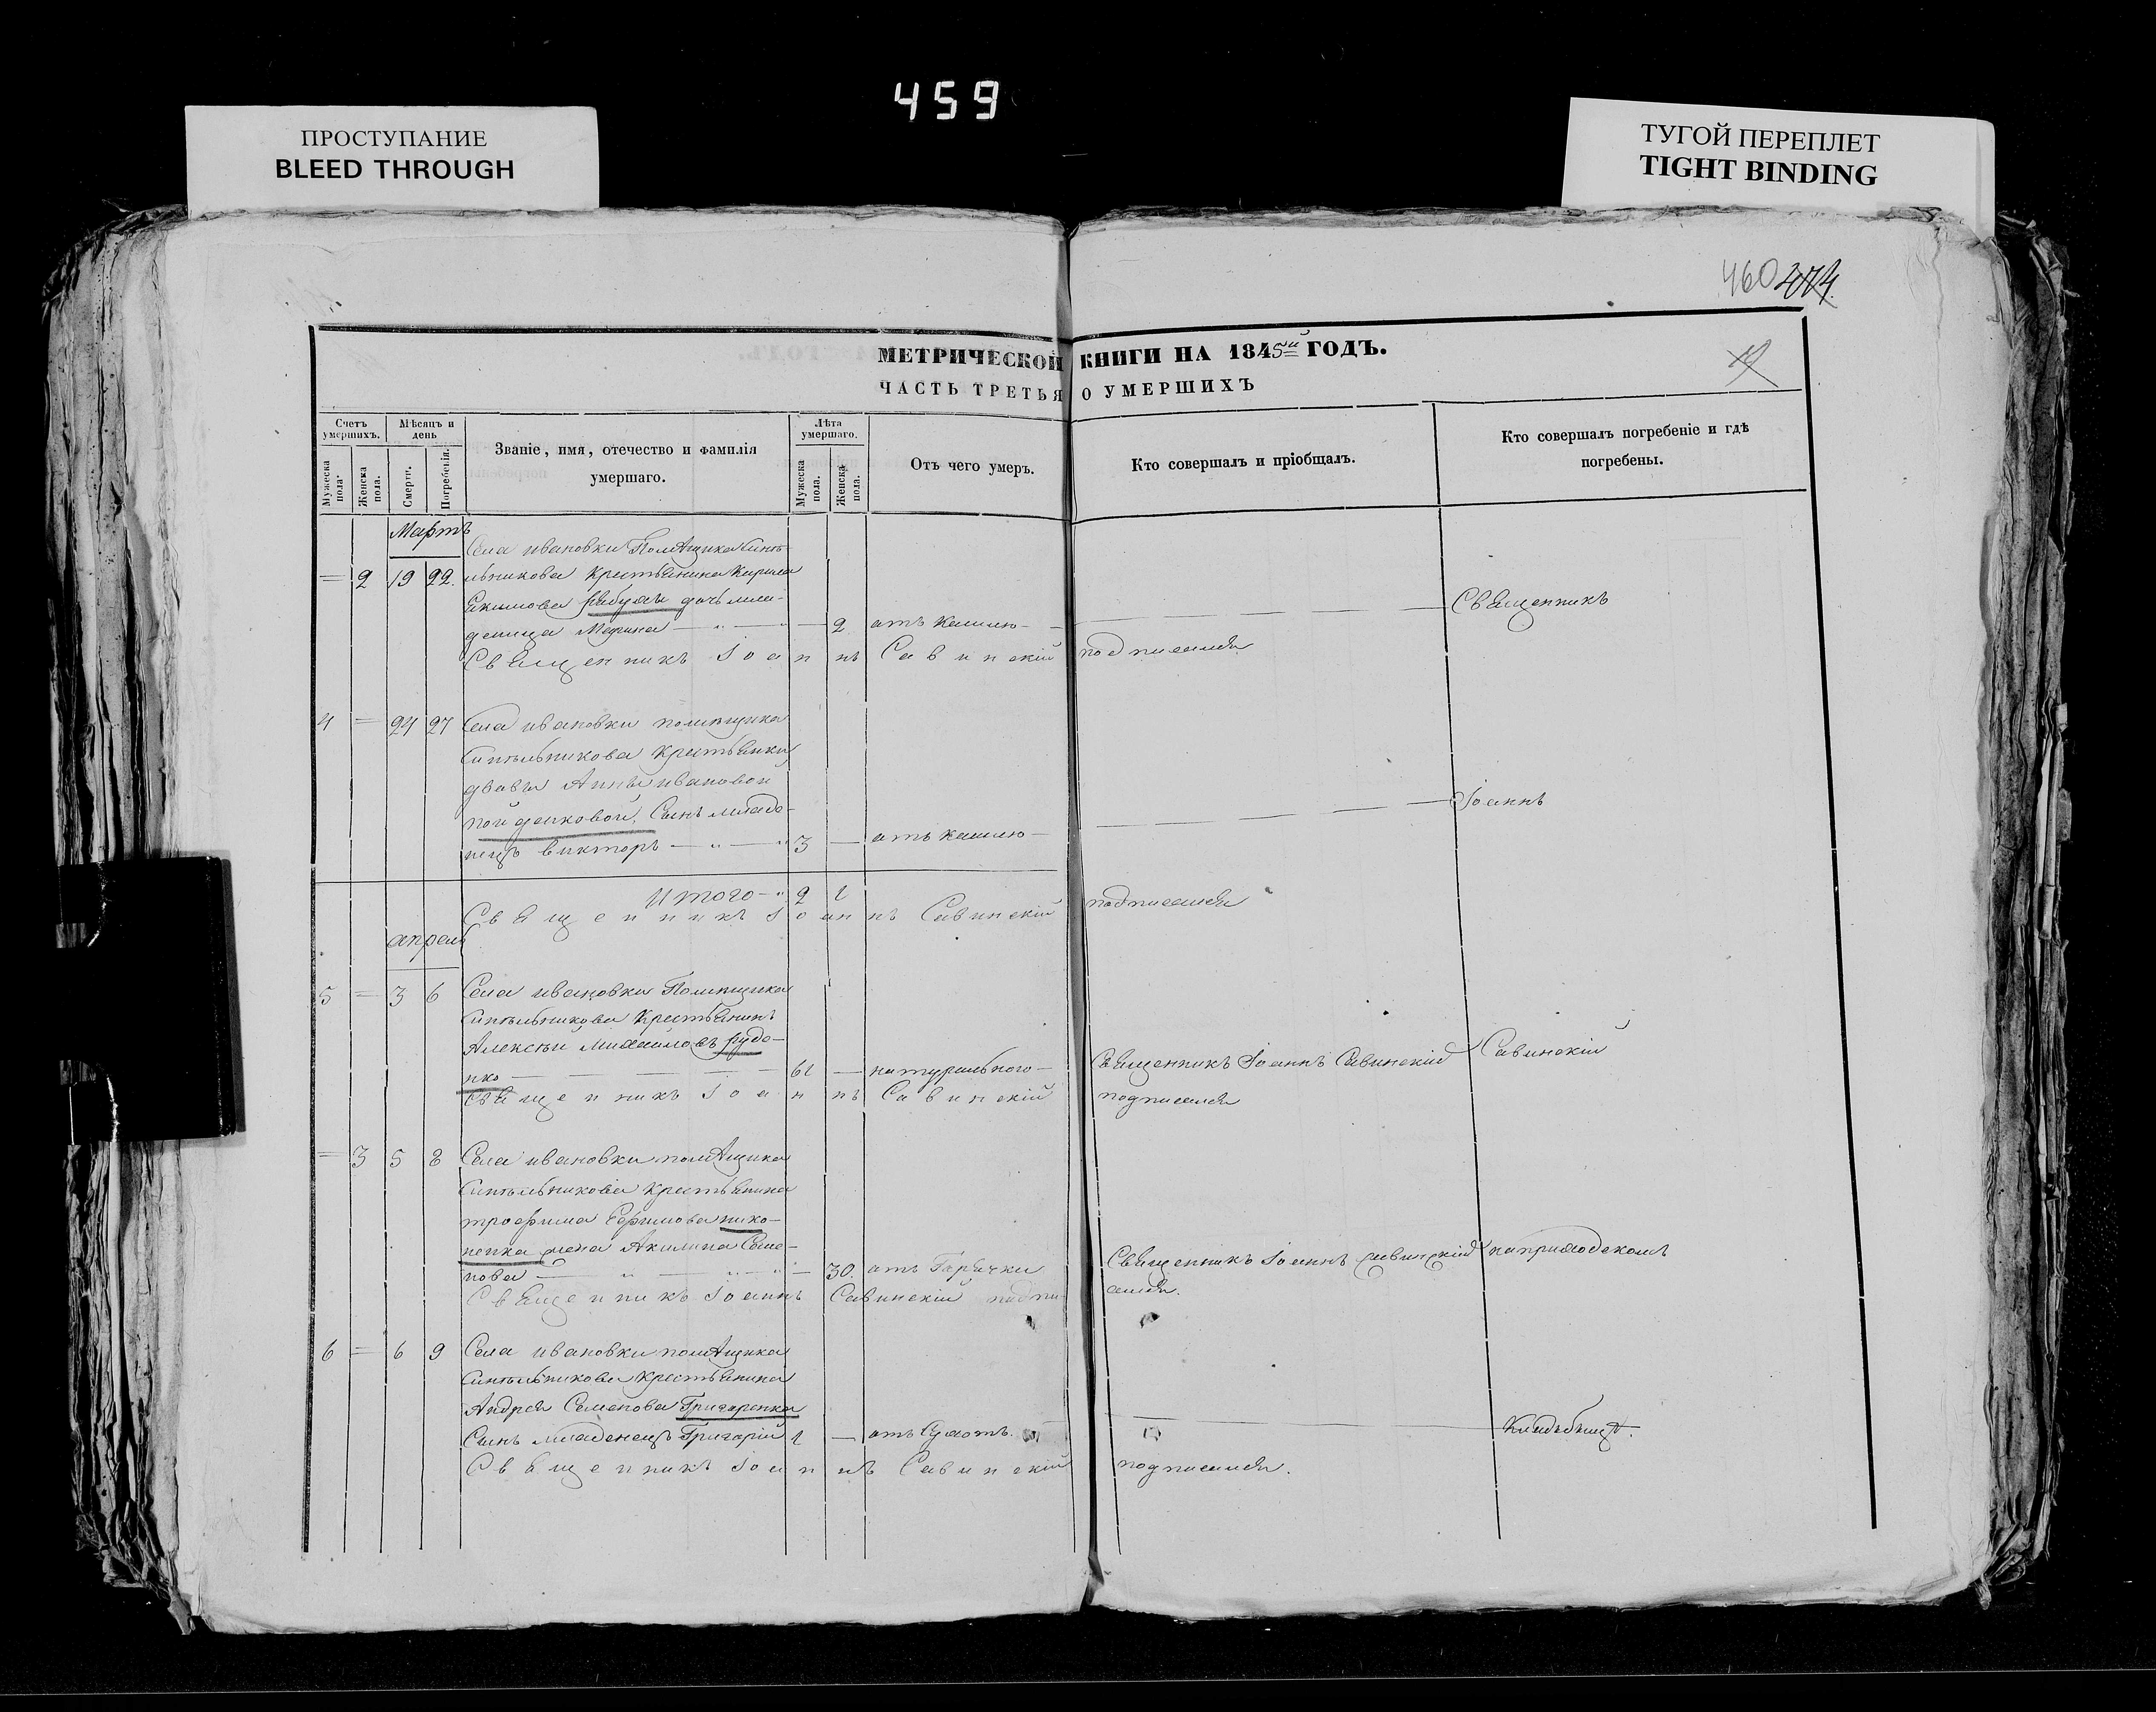 459
ПРОСТУПАНИЕ
BLEED THROUGH
ТУГОЙ ПЕРЕПЛЕТ
TIGHT BINDING
460
МЕТРИЧЕСКОЙ КНИГИ НА 1845й ГОДЪ.
ЧАСТЬ ТРЕТЬЯ О УМЕРШИХЪ
Счетъ умершихъ.
Мужеска пола.
Женска пола.
Мѣсяцъ и день
Смерти.
Погребенія.
Званіе, имя, отчество и фамилія
умершаго.
Лѣта умершаго.
Мужеска пола.
Женска пола.
Отъ чего умеръ.
Кто совершалъ и пріобщалъ.
Кто совершалъ погребеніе и гдѣ
погребены.
Мартъ
Села ивановки Помѣщика Синѣ
= 2 19 22. льникова Крестьянина Кирила
дочь мла-
деница Марина — 2 отъ кашлю — Священникъ
Священникъ Іоаннъ Савинскій подписался
4 = 24 27 Села ивановки помѣщика
Синѣльникова Крестьянки
вдовы Анны ивановой
Сынъ младе-
нецъ викторъ — 3 — отъ кашлю — Іоаннъ
Итого — 2 1
Священникъ Іоаннъ Савинскій подписался
апрель
5 = 3 6 Села ивановки Помѣщика
Синѣльникова Крестьянинъ
Алексѣй Михаиловъ рудо-
нко — 61 — натурального — Священникъ Іоаннъ Савинскій Савинскій
Священникъ Іоаннъ Савинскій подписался
= 3 5 8 Села ивановки помѣщика
Синѣльникова Крестьянина
трофима Ефимова нико-
ненка жена Акилина Семе-
нова — 30. отъ Гарячки Священникъ Іоаннъ Савинскій на приходскомъ
Священникъ Іоаннъ Савинскій подписался.
6 = 6 9 Села ивановки помѣщика
Синѣльникова Крестьянина
Андрея Семенова Григоренка
Сынъ младенецъ Григорій 1 — отъ Сухотъ. — Кладбищѣ.
Священникъ Іоаннъ Савинскій подписался.